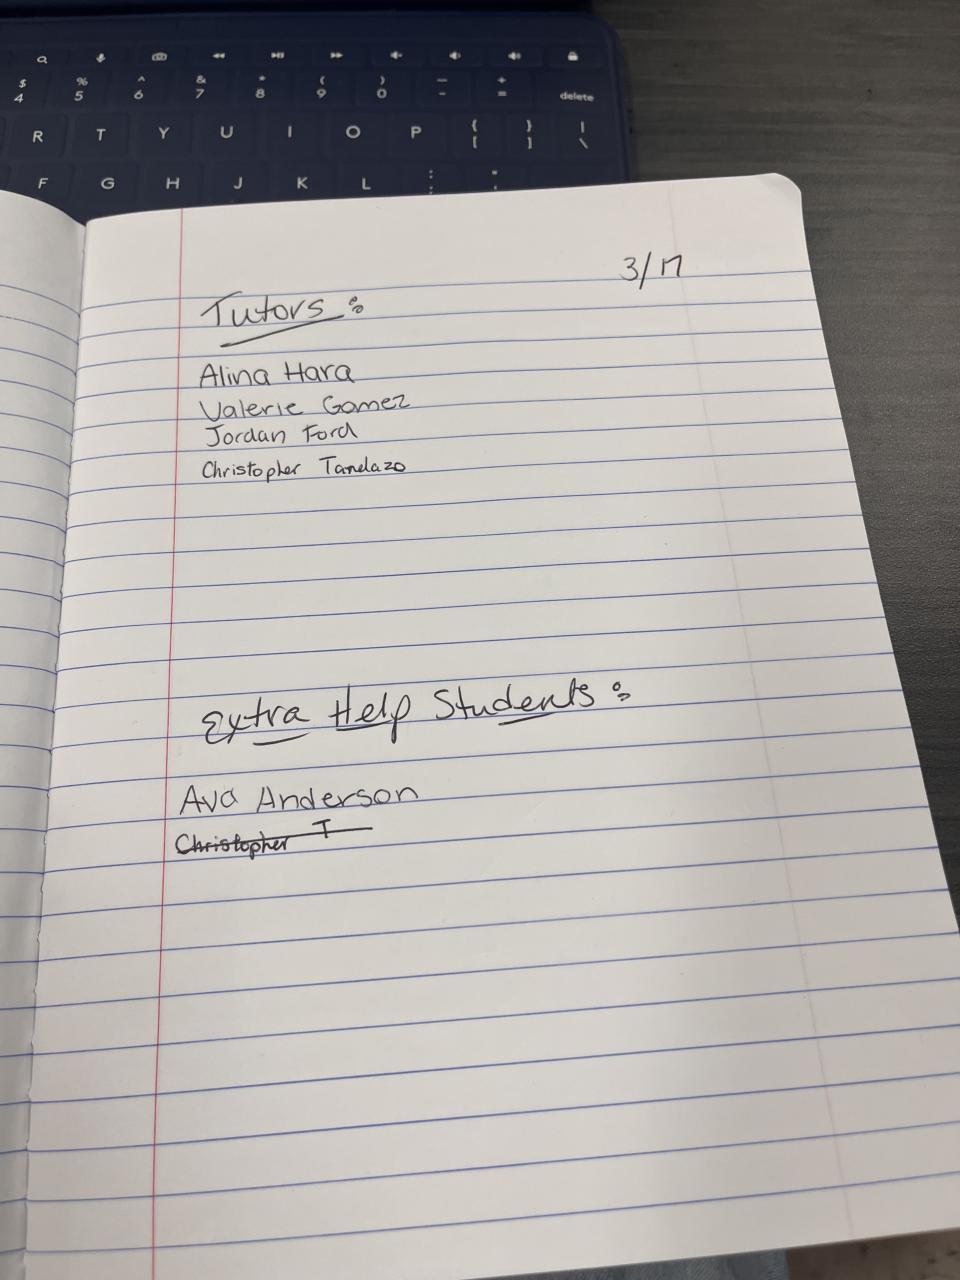 $ % ^ & * ( ) — +
4 5 6 7 8 9 0 - = delete
R T Y U I O P { } |
[ ] \
F G H J K L : "
; '
3/17
Tutors:
Alina Hara
Valerie Gomez
Jordan Ford
Christopher Tandazo
Extra Help Students:
Ava Anderson
Christopher T